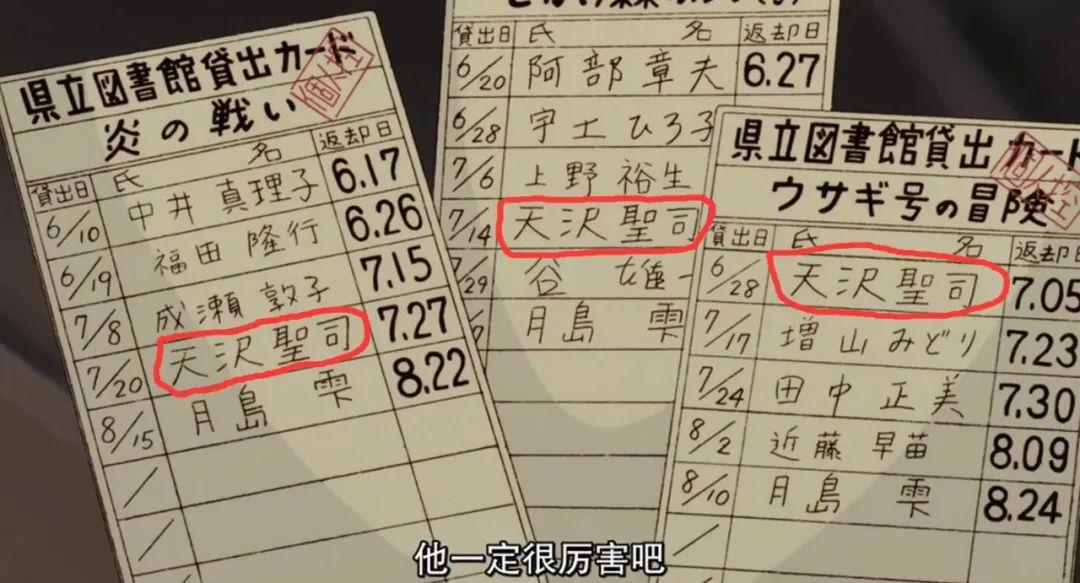 県立図書館貸出カード
炎の戦い
貸出日 氏 名 返却日
6/10 中井 真理子 6.17
6/19 福田 隆行 6.26
7/8 成瀬 敦子 7.15
7/20 天沢聖司 7.27
8/15 月島 雫 8.22
貸出日 氏 名 返却日
6/20 阿部章夫 6.27
6/28 宇土ひろ子
7/6 上野 裕生
7/14 天沢聖司
/29 谷 雄一
月島 雫
県立図書館貸出カード
ウサギ号の冒険
貸出日 氏 名 返却日
6/28 天沢聖司 7.05
7/17 増山みどり 7.23
7/24 田中 正美 7.30
8/2 近藤 早苗 8.09
8/10 月島 雫 8.24
他一定很厉害吧